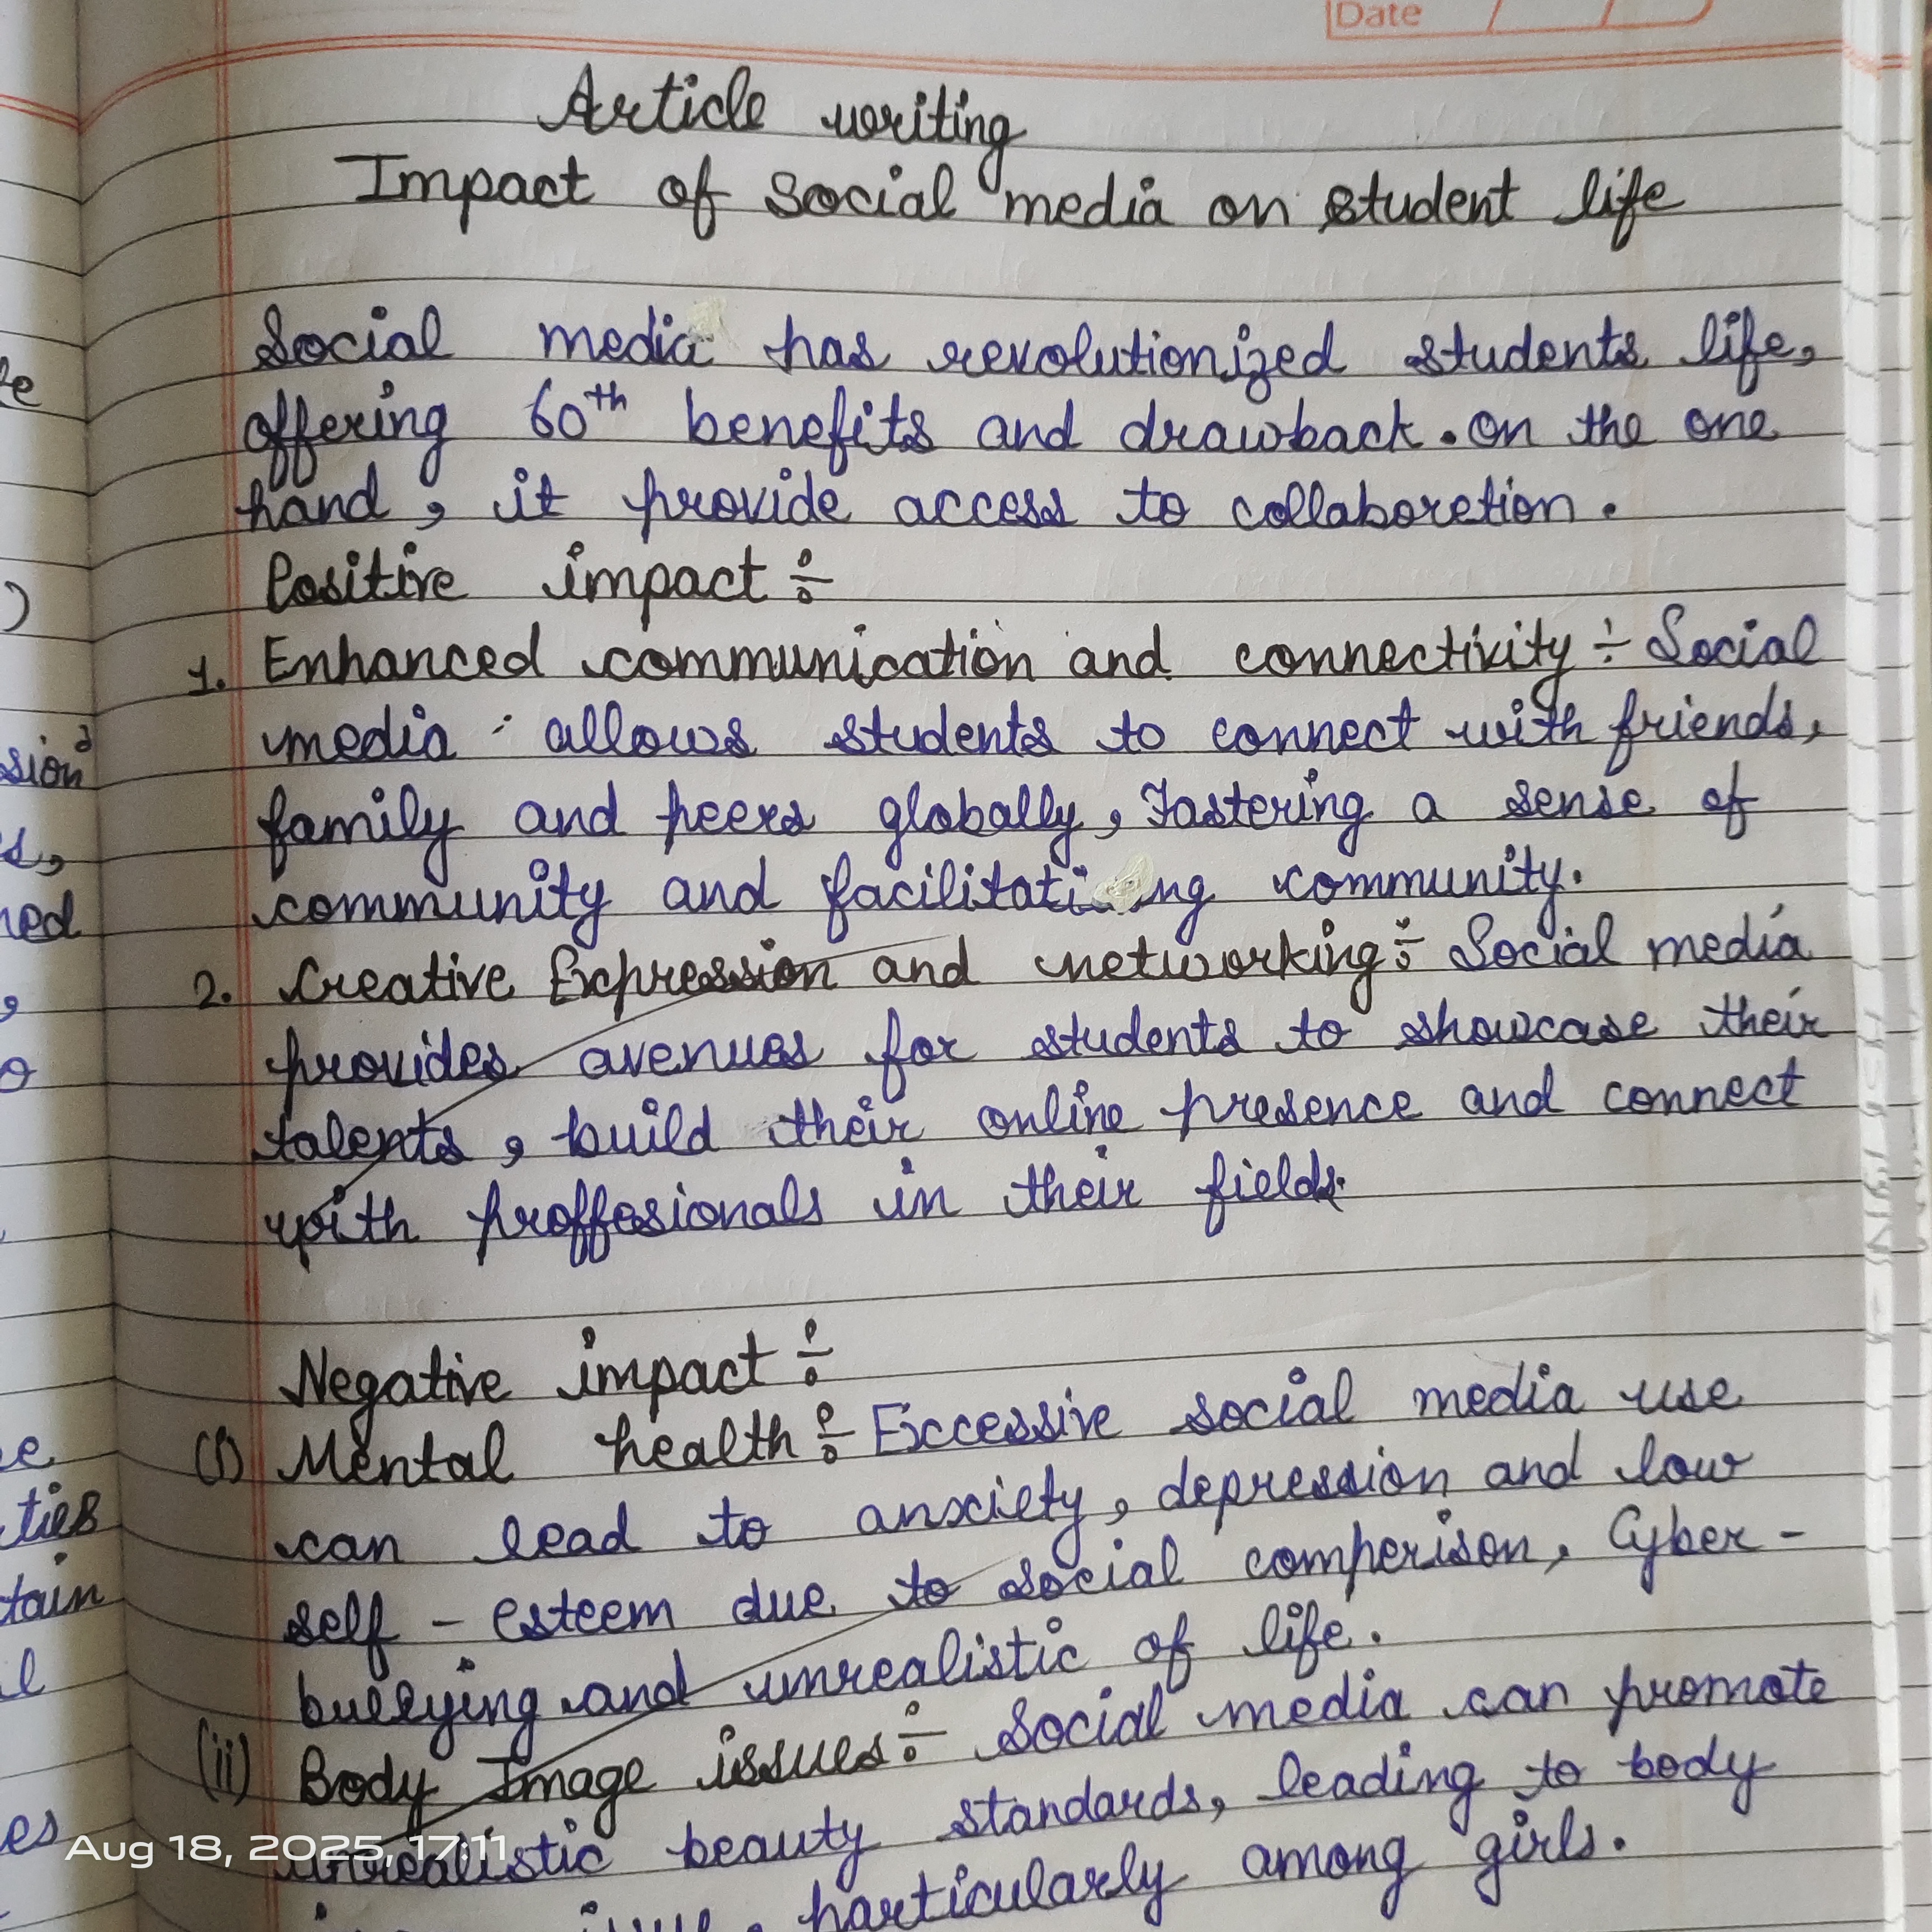 Date
Article writing
Impact of social media on student life
Social media has revolutionized students life,
offering 60th benefits and drawback. on the one
hand, it provide access to collaboretion.
Positive impact ÷
1. Enhanced communication and connectivity ÷ Social
media allows students to connect with friends,
family and peers globally, Fastering a sense of
community and facilitating community.
2. Creative Expression and networking ÷ Social media
provides avenues for students to showcase their
talents, build their online presence and connect
with proffesionals in their fields.
Negative impact ÷
(i) Mental health ÷ Exccessive social media use
can lead to anxciety, depression and low
self - esteem due to social comperison, Cyber -
bullying and unrealistic of life.
(ii) Body Image issues ÷ Social media can promote
unrealistic beauty standards, leading to body
particularly among girls.
Aug 18, 2025, 17:11